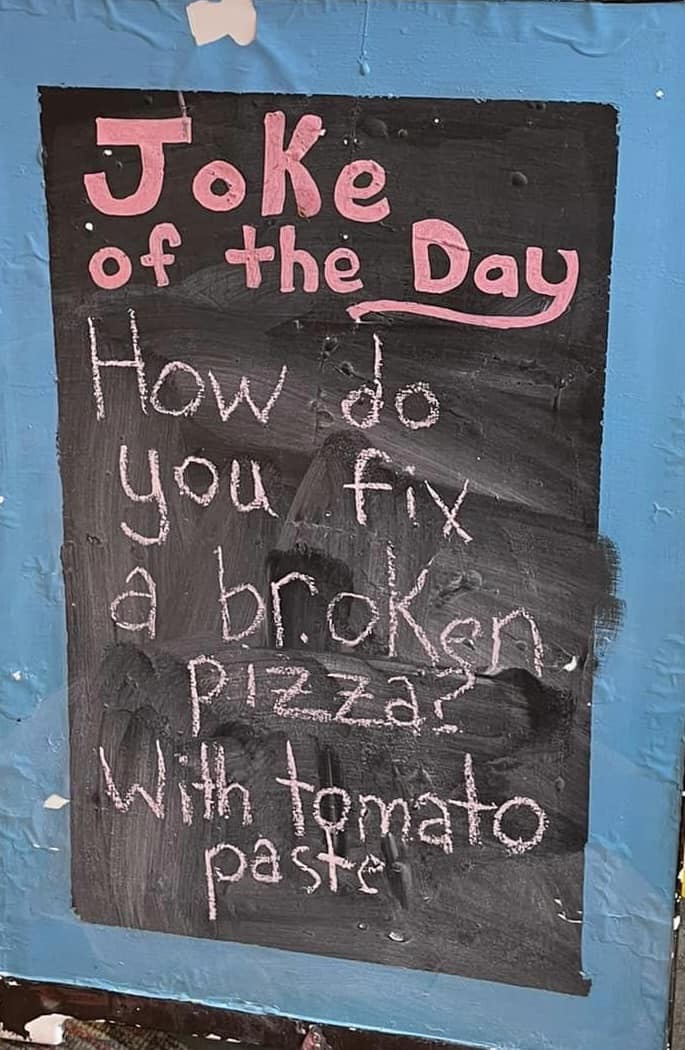 Joke
of the Day
How do
you fix
a broken
pizza?
With tomato
paste